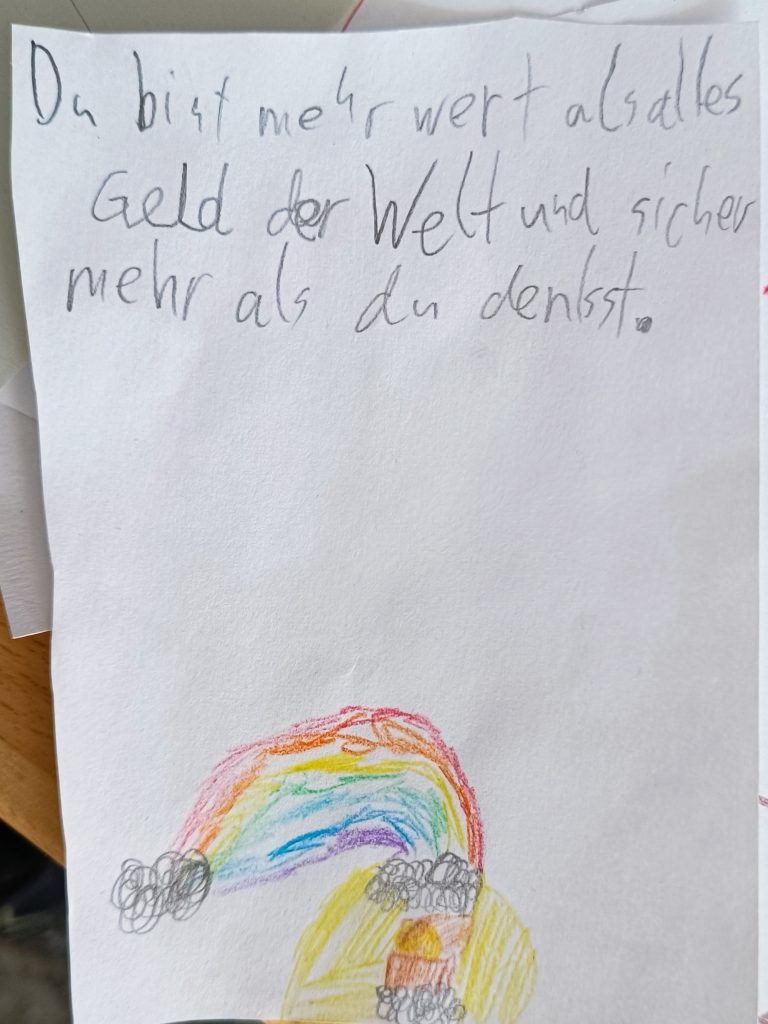 Du bist mehr wert als alles
Geld der Welt und sicher
mehr als du denkst.